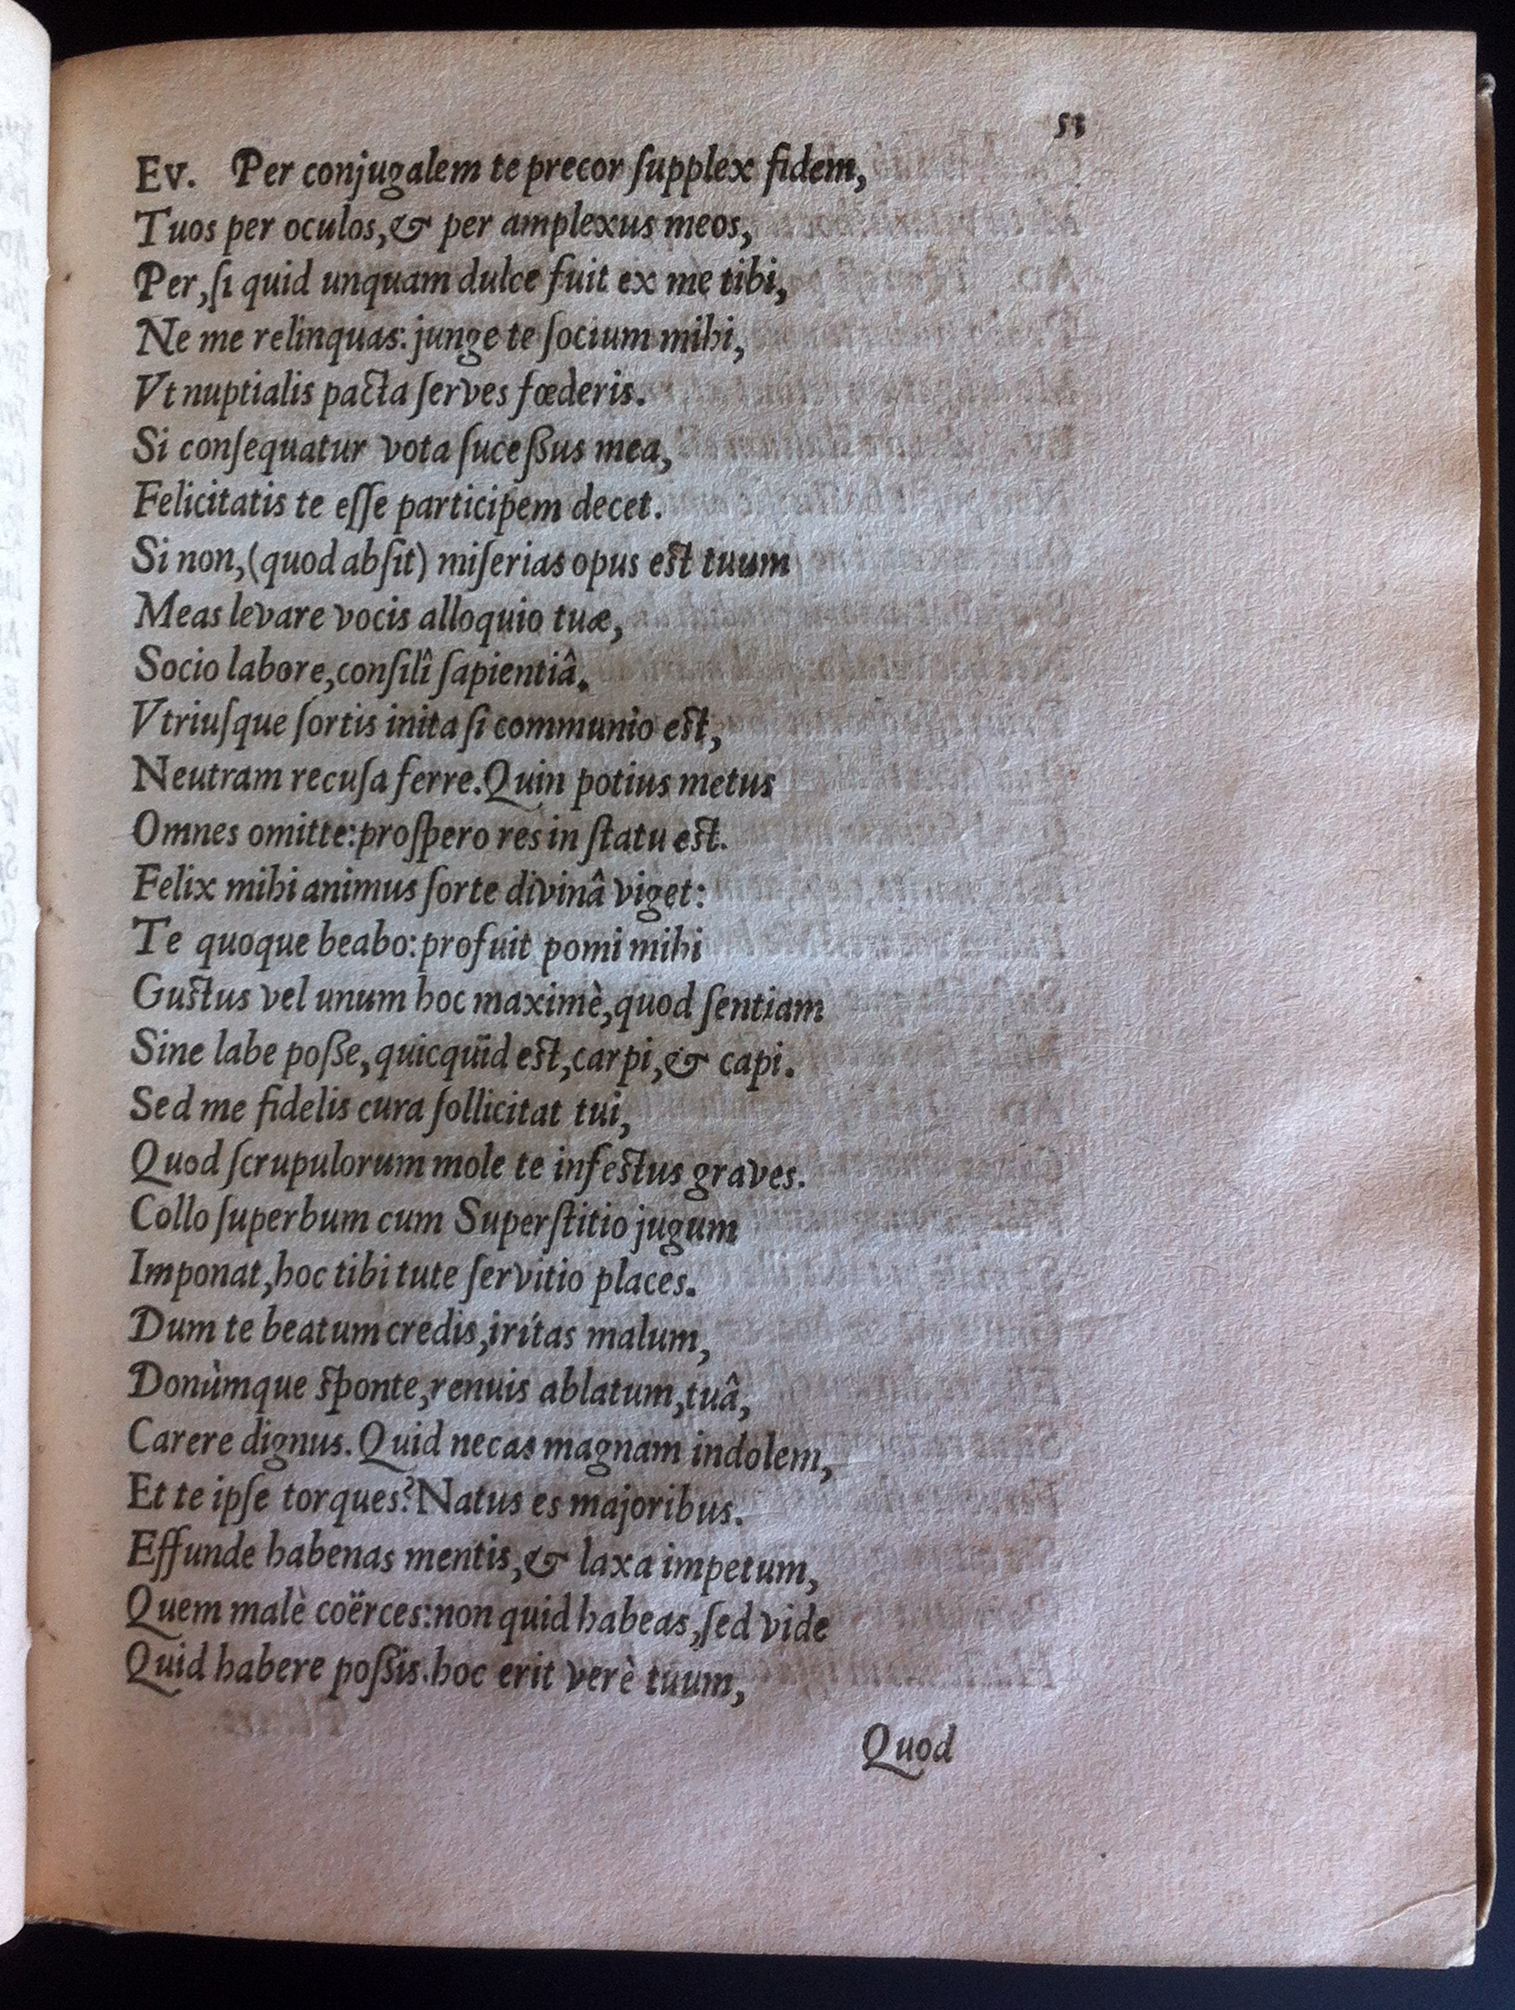 53
EV. Per conjugalem te precor ſupplex fidem,
Tuos per oculos,& per amplexus meos,
Per,ſi quid unquam dulce fuit ex me tibi,
Ne me relinquas: junge te ſocium mihi,
Vt nuptialis pacta ſerves fœderis.
Si conſequatur vota ſuceßus mea,
Felicitatis te eſſe participem decet.
Si non,(quod abſit) miſerias opus est tuum
Meas levare vocis alloquio tuæ,
Socio labore,conſilî ſapientiâ.
Vtriuſque ſortis inita ſi communio est,
Neutram recuſa ferre.Quin potius metus
Omnes omitte:proſpero res in ſtatu est.
Felix mihi animus ſorte divinâ viget:
Te quoque beabo:profuit pomi mihi
Gustus vel unum hoc maximè,quod ſentiam
Sine labe poße,quicquid est,carpi,& capi.
Sed me fidelis cura ſollicitat tui,
Quod ſcrupulorum mole te infestus graves.
Collo ſuperbum cum Superſtitio jugum
Imponat,hoc tibi tute ſervitio places.
Dum te beatum credis,irítas malum,
Donùmque ſponte,renuis ablatum,tuâ,
Carere dignus.Quid necas magnam indolem,
Et te ipſe torques?Natus es majoribus.
Effunde habenas mentis,& laxa impetum,
Quem malè coërces:non quid habeas,ſed vide
Quid habere poßis.hoc erit verè tuum,
Quod